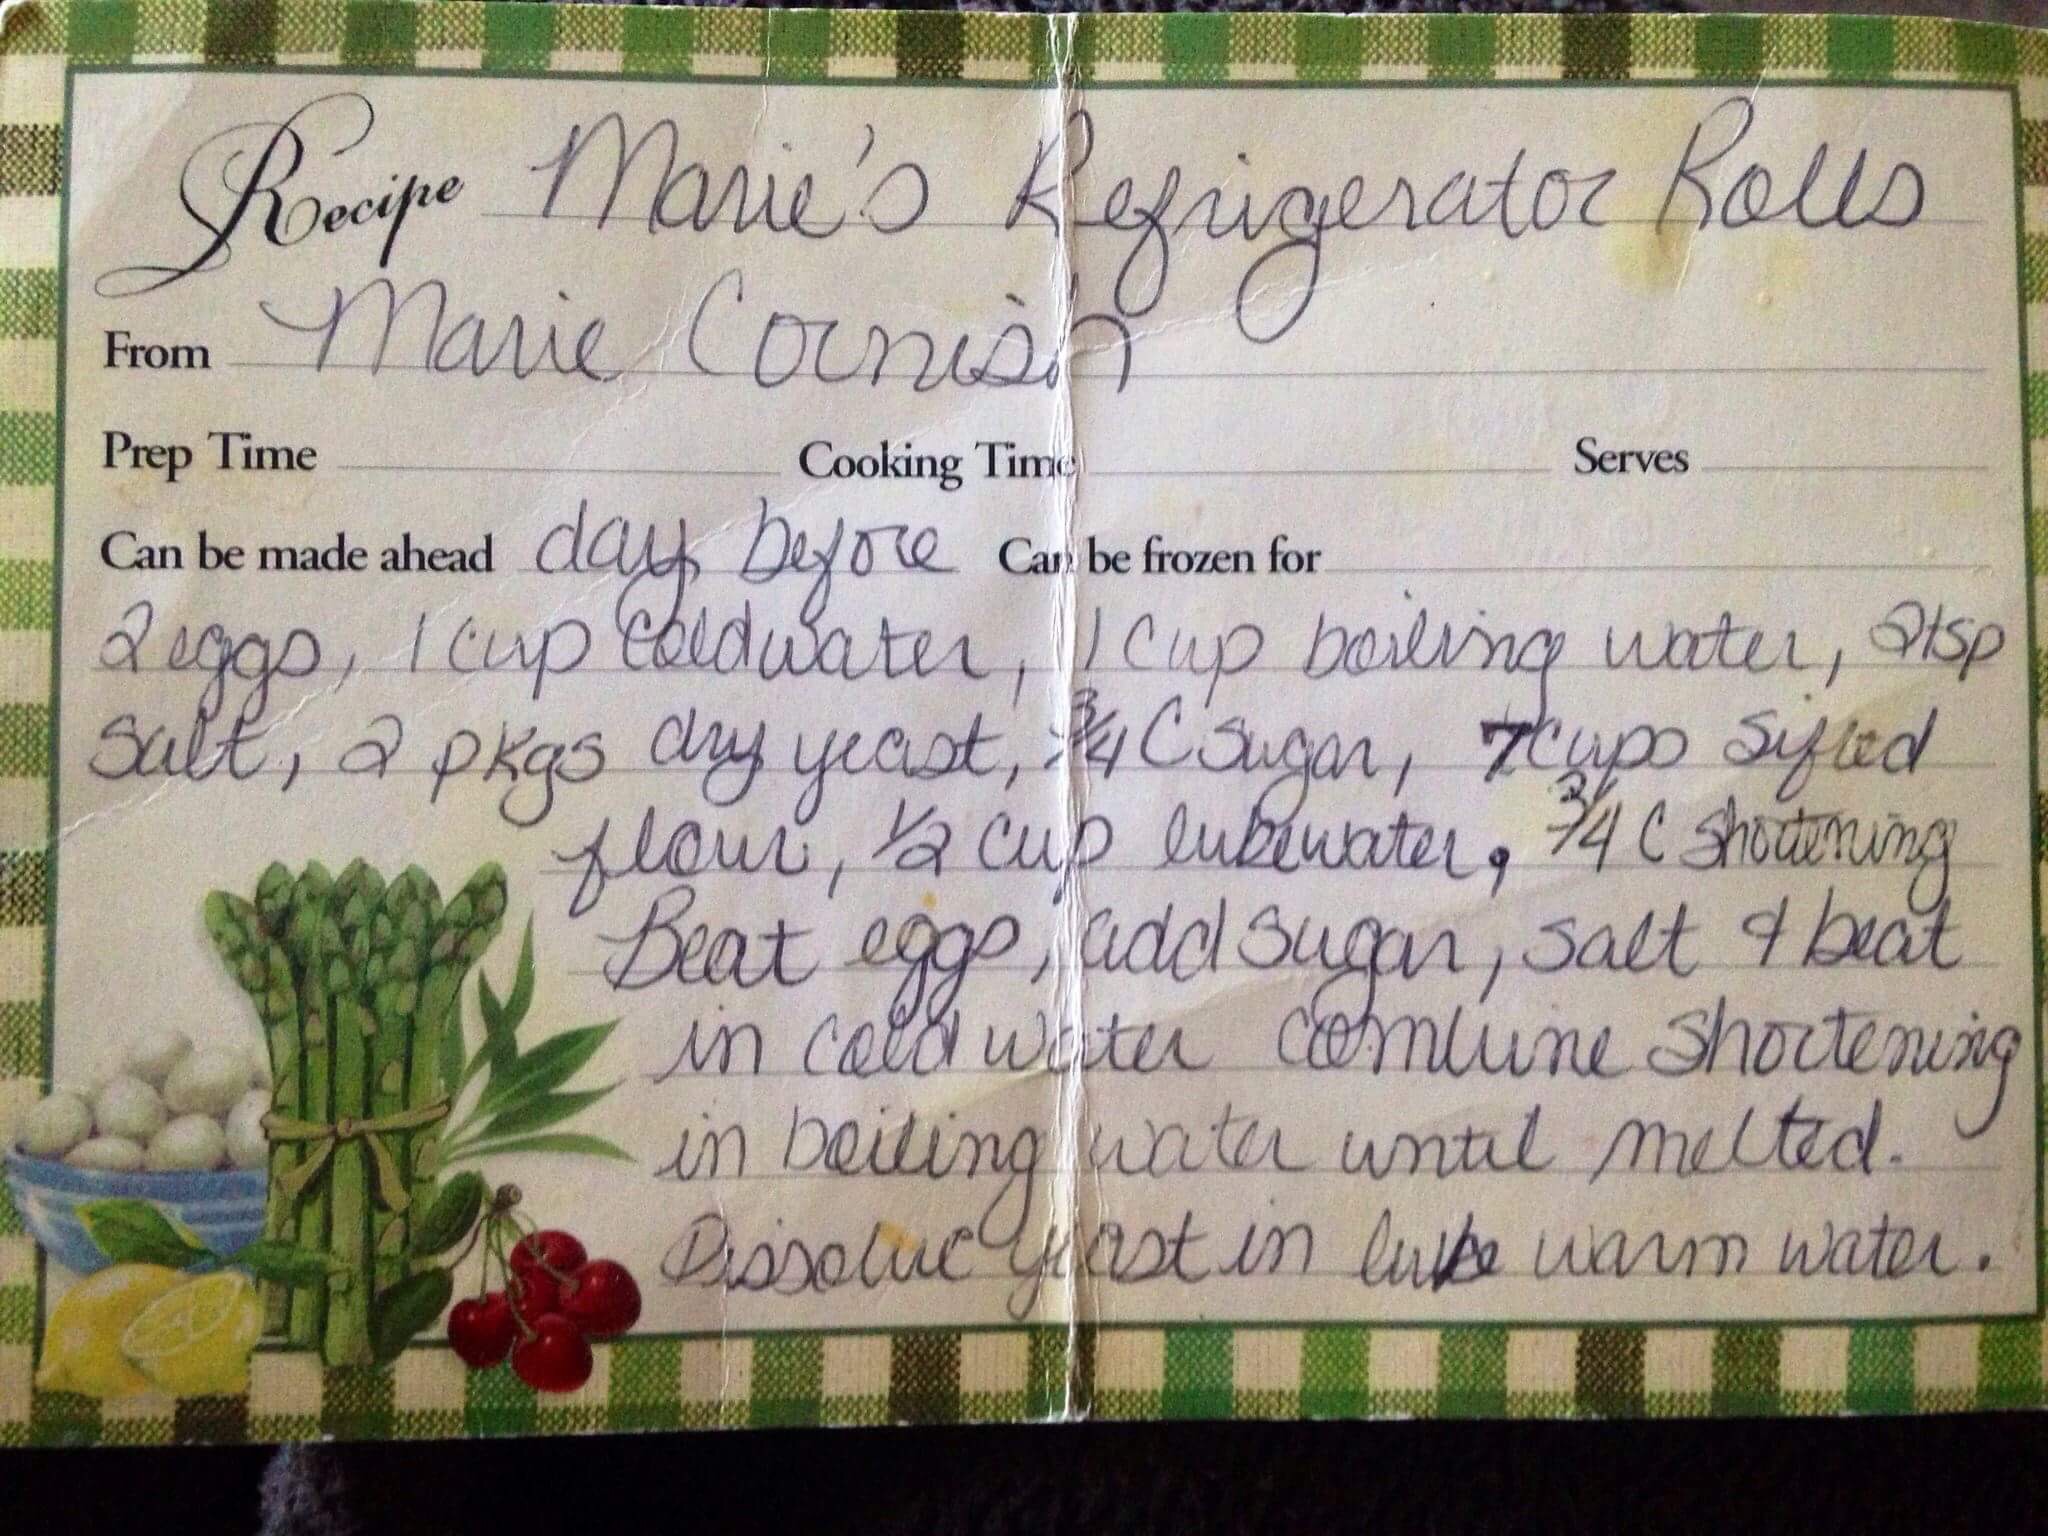 Recipe Marie's Refrigerator Rolls
From Marie Cornish
Prep Time Cooking Time Serves
Can be made ahead day before Can be frozen for
2 eggs, 1 cup cold water, 1 cup boiling water, 2 tsp
salt, 2 pkgs dry yeast, 3/4 C sugar, 7 cups sifted
flour, 1/2 cup lukewater, 3/4 C shortening
Beat eggs, add sugar, salt & beat
in cold water combine shortening
in boiling water until melted.
Dissolve yeast in luke warm water.